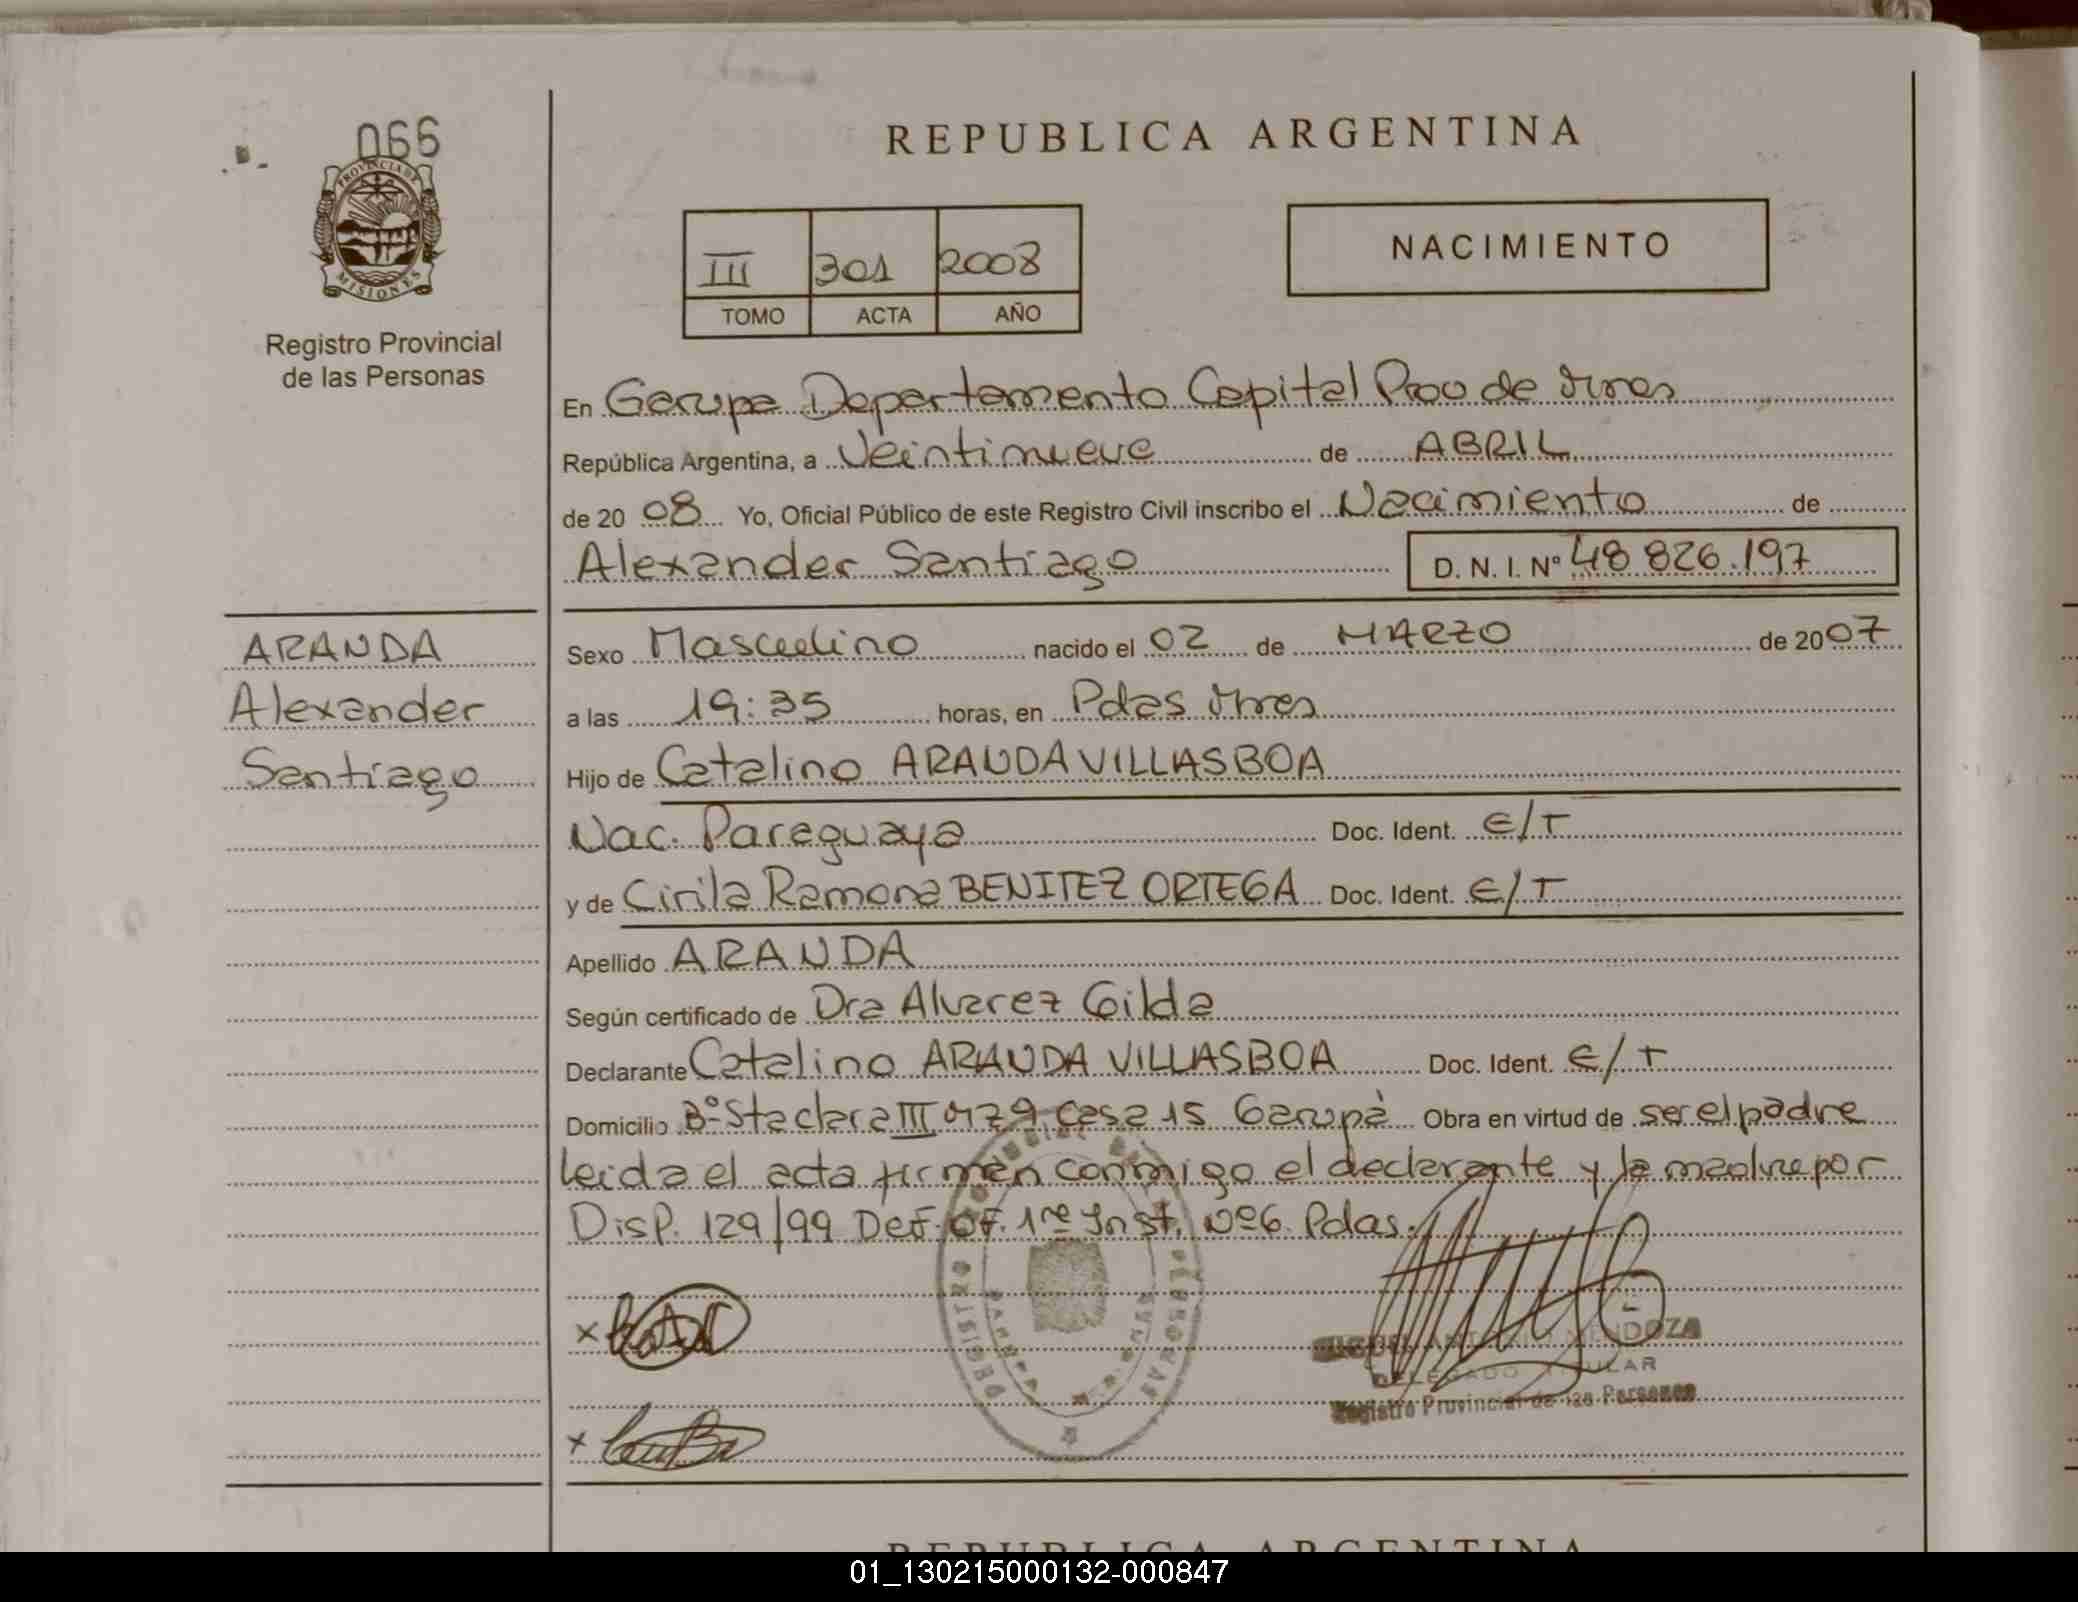 066
PROVINCIA DE
MISIONES
Registro Provincial
de las Personas
REPUBLICA ARGENTINA
III 301 2008
TOMO ACTA AÑO
NACIMIENTO
En Garupa Departamento Capital Prov de Mnes
República Argentina, a Veintinueve de ABRIL
de 20 08 Yo, Oficial Público de este Registro Civil inscribo el Nacimiento de
Alexander Santiago D. N. I. Nº 48 826.197
ARANDA
Alexander
Santiago
Sexo Masculino nacido el 02 de MARZO de 2007
a las 19:35 horas, en Pdas Mnes
Hijo de Catalino ARANDA VILLASBOA
Nac. Paraguaya Doc. Ident. E/T
y de Cirila Ramona BENITEZ ORTEGA Doc. Ident. E/T
Apellido ARANDA
Según certificado de Dra Alvarez Gilda
Declarante Catalino ARANDA VILLASBOA Doc. Ident. E/T
Domicilio Bº Sta clara III casa 15 Garupà Obra en virtud de ser el padre
leida el acta firman conmigo el declarante y la madre por
Disp. 129/99 Def. Of. 1re Inst. Nº6. Pdas.
ANTONIO MENDOZA
DELEGADO TITULAR
Registro Provincial de las Personas
REGISTRO PERSONAS
MISIONES
REPUBLICA ARGENTINA
01_130215000132-000847